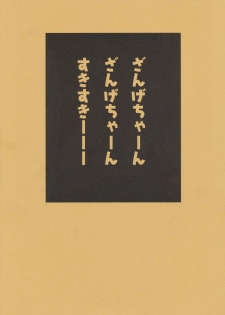 ざんげちゃーん
ざんげちゃーん
すきすぎーーー